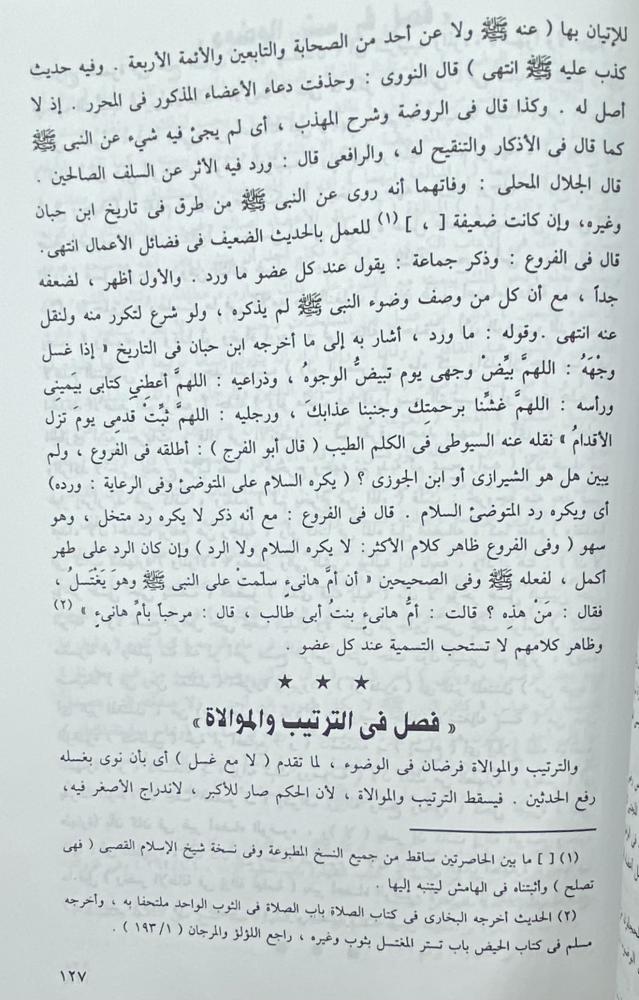 للإتيان بها ( عنه ﷺ ولا عن أحد من الصحابة والتابعين والأئمة الأربعة . وفيه حديث
كذب عليه ﷺ انتهى ) قال النووى : وحذفت دعاء الأعضاء المذكور فى المحرر . إذ لا
أصل له . وكذا قال فى الروضة وشرح المهذب ، أى لم يجئ فيه شىء عن النبى ﷺ
كما قال فى الأذكار والتنقيح له ، والرافعى قال : ورد فيه الأثر عن السلف الصالحين .
قال الجلال المحلى : وفاتهما أنه روى عن النبى ﷺ من طرق فى تاريخ ابن حبان
وغيره، وإن كانت ضعيفة [ ، ] (١) للعمل بالحديث الضعيف فى فضائل الأعمال انتهى.
قال فى الفروع : وذكر جماعة : يقول عند كل عضو ما ورد . والأول أظهر ، لضعفه
جداً ، مع أن كل من وصف وضوء النبى ﷺ لم يذكره ، ولو شرع لتكرر منه ولنقل
عنه انتهى .وقوله : ما ورد ، أشار به إلى ما أخرجه ابن حبان فى التاريخ « إذا غسل
وجْهَهُ : اللهمَّ بيِّضْ وجهى يوم تبيضُّ الوجوهُ ، وذراعيه : اللهمَّ أعطنِي كتابى بيَمينِى
ورأسه : اللهمَّ غشِّنا برحمتِك وجنبنا عذابكَ ، ورجليه : اللهمَّ ثبِّتْ قدمِى يومَ تزل
الأقدامُ » نقله عنه السيوطى فى الكلم الطيب ( قال أبو الفرج ) : أطلقه فى الفروع ، ولم
يبين هل هو الشيرازى أو ابن الجوزى ؟ ( يكره السلام على المتوضئ وفى الرعاية : ورده)
أى ويكره رد المتوضئ السلام . قال فى الفروع : مع أنه ذكر لا يكره رد متخل ، وهو
سهو ( وفى الفروع ظاهر كلام الأكثر: لا يكره السلام ولا الرد ) وإن كان الرد على طهر
أكمل ، لفعله ﷺ وفى الصحيحين « أن أمَّ هانىءٍ سلّمتْ على النبى ﷺ وهوَ يَغْتَسلُ ،
فقال : مَنْ هذِه ؟ قالت : أمُّ هانىءٍ بنتُ أبى طالب ، قال : مرحباً بأمِّ هانىءٍ » (٢)
وظاهر كلامهم لا تستحب التسمية عند كل عضو .
★ ★ ★
« فصل فى الترتيب والموالاة »
والترتيب والموالاة فرضان فى الوضوء ، لما تقدم ( لا مع غسل ) أى بأن نوى بغسله
رفع الحدثين . فيسقط الترتيب والموالاة ، لأن الحكم صار للأكبر ، لاندراج الأصغر فيه،
(١) [ ] ما بين الحاصرتين ساقط من جميع النسخ المطبوعة وفى نسخة شيخ الإسلام القصبى ( فهى
تصلح ) وأثبتناه فى الهامش ليتنبه إليها .
(٢) الحديث أخرجه البخارى فى كتاب الصلاة باب الصلاة فى الثوب الواحد ملتحفا به ، وأخرجه
مسلم فى كتاب الحيض باب تستر المغتسل بثوب وغيره ، راجع اللؤلؤ والمرجان ( ١٩٣/١ ) .
١٢٧